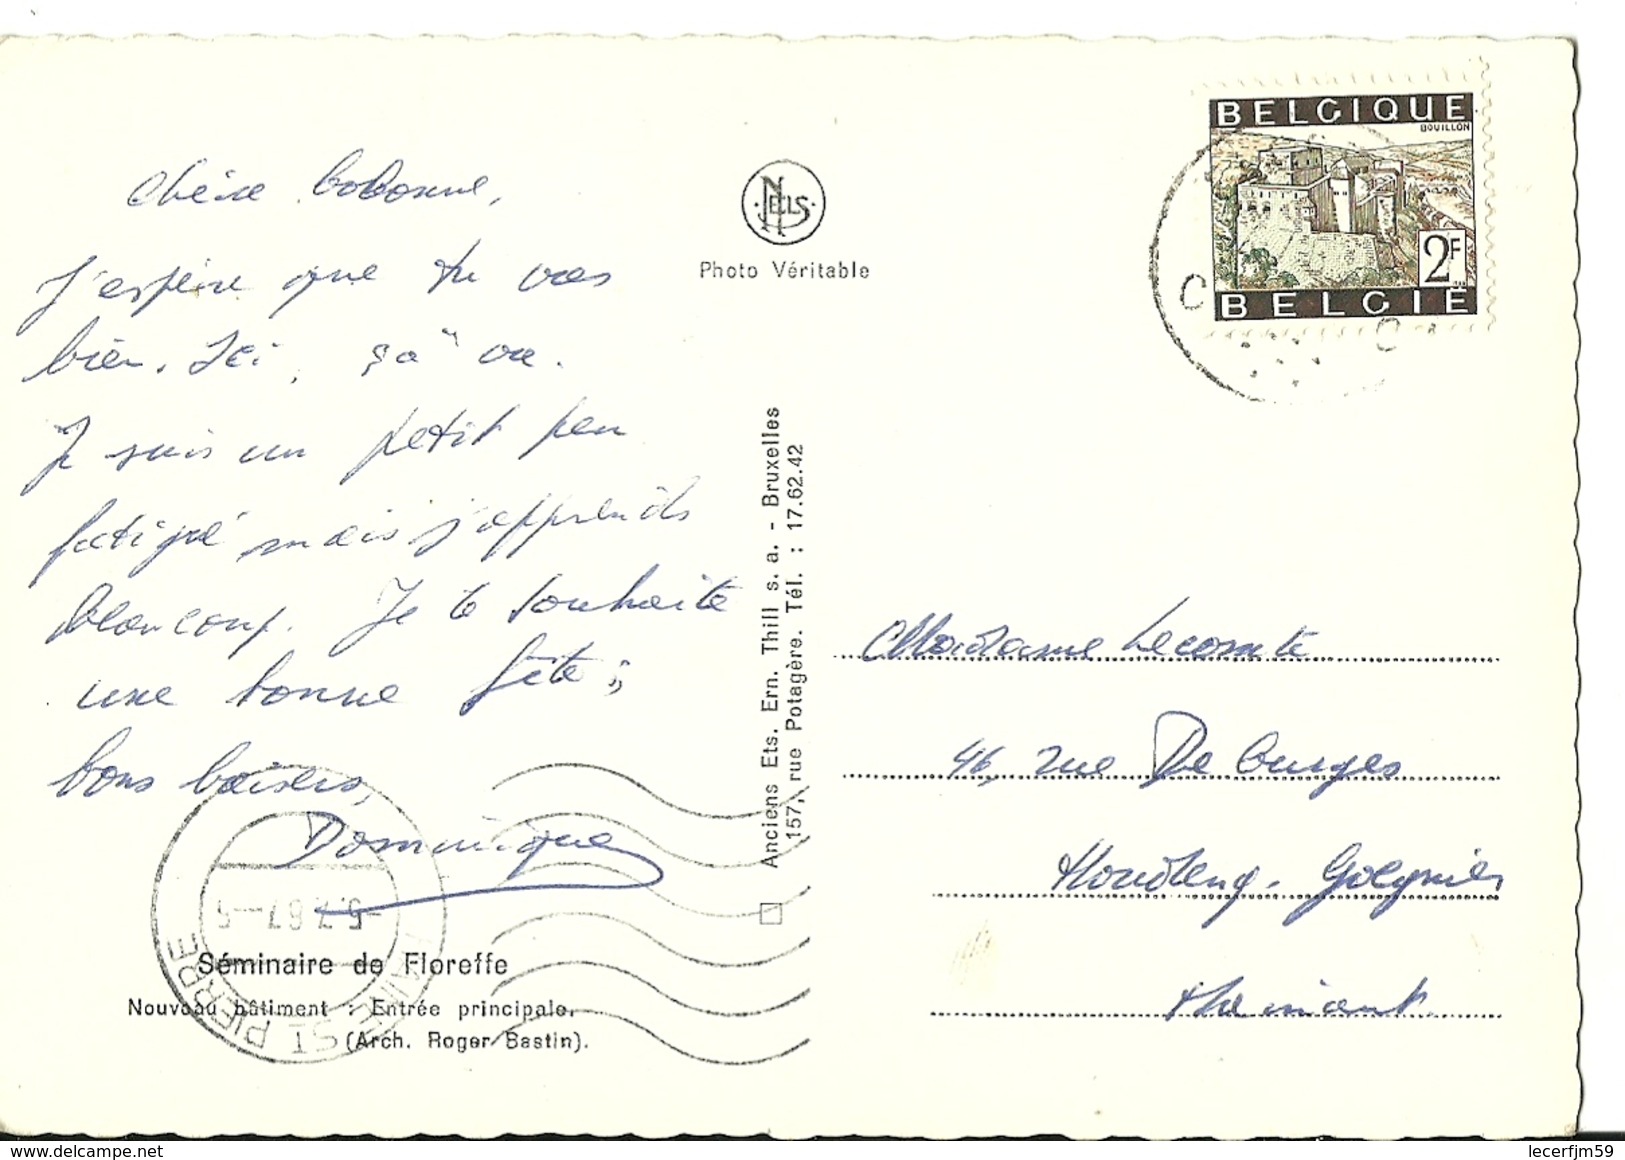 Chère bobonne,
J'espère que tu vas
bien. Ici, ça va.
Je suis un petit peu
fatigué mais j'apprends
beaucoup. Je te souhaite
une bonne fête;
bons baisers,
Dominique
Séminaire de Floreffe
Nouveau bâtiment : Entrée principale.
(Arch. Roger Bastin).
NELS
Photo Véritable
Anciens Ets. Ern. Thill s. a. - Bruxelles
157, rue Potagère. Tél. : 17.62.42
BELGIQUE
BOUILLON
2F
BELGIË
Madame Lecomte
46, rue De Burges
Houdeng-Goegnies
Hainaut.
ST. PIERRE
5.7.67
delcampe.net
lecerfjm59